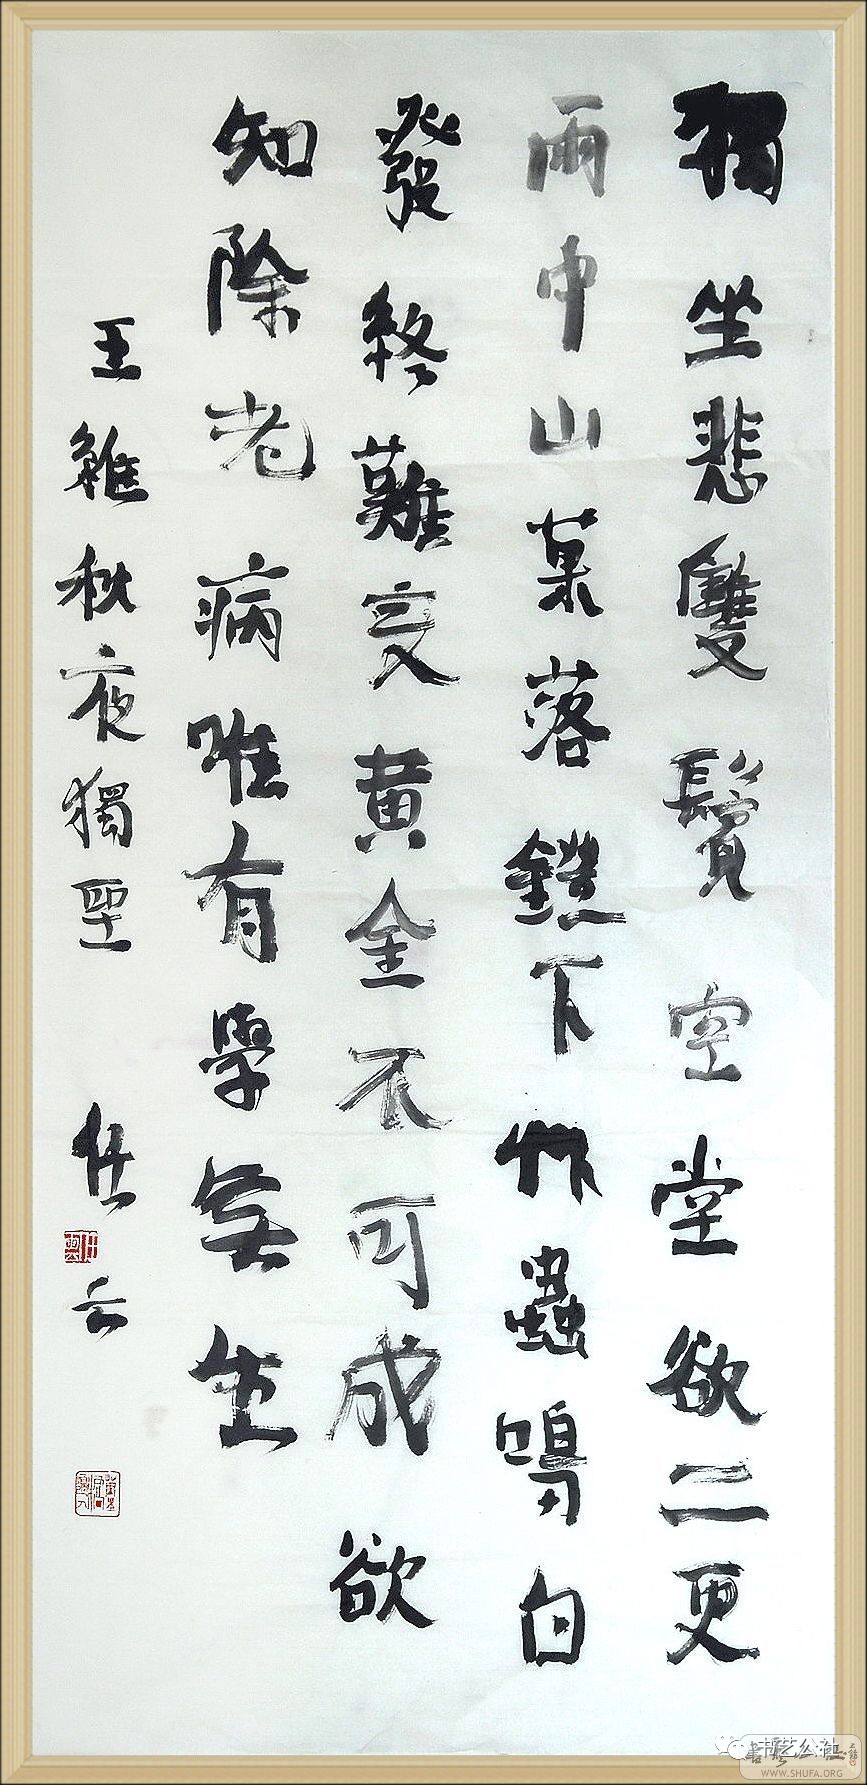 獨坐悲雙鬢空堂欲二更
雨中山菓落鐙下艸蟲鳴白
發終難变黄金不可成欲
知除老病唯有學無生
王維秋夜獨坐
书艺公社
WWW.SHUFA.ORG